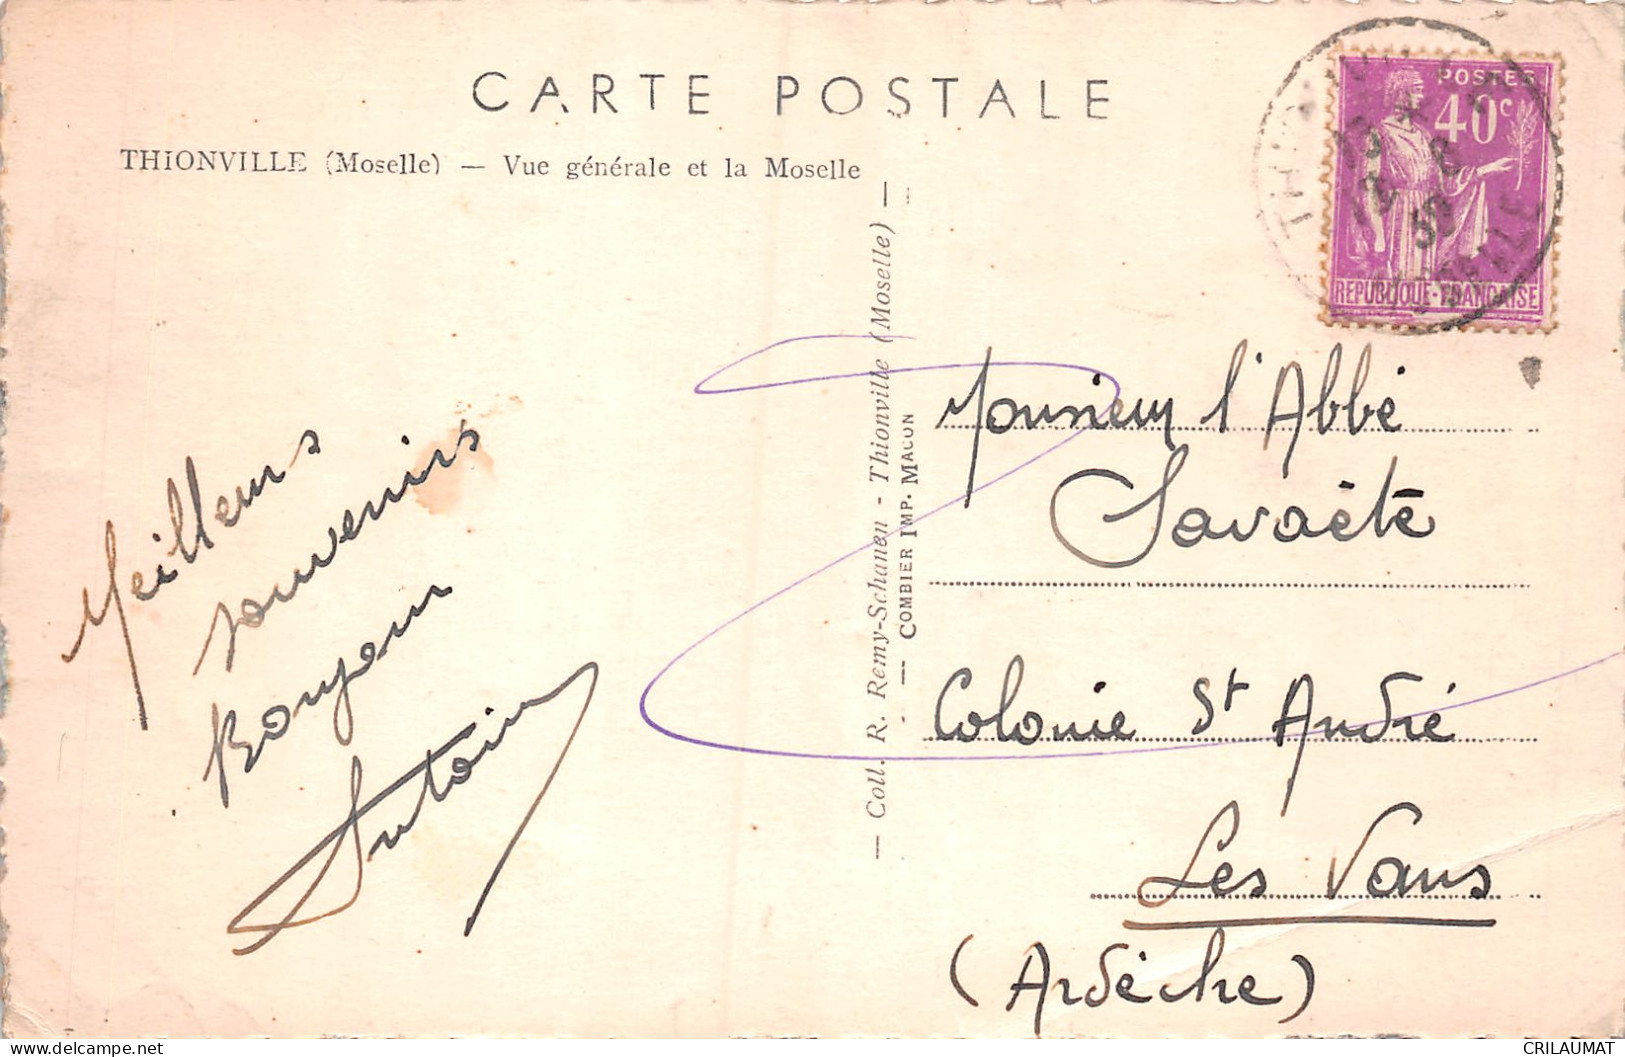 CARTE POSTALE
THIONVILLE (Moselle) — Vue générale et la Moselle
POSTES
40c
REPUBLIQUE-FRANÇAISE
12 8
Meilleurs
souvenirs
Antoine
— Coll. R. Remy-Schanen - Thionville (Moselle) —
— COMBIER IMP. MACON
Monsieur l'Abbé
Savaète
Colonie St André
Les Vans
(Ardèche)
CRILAUMAT